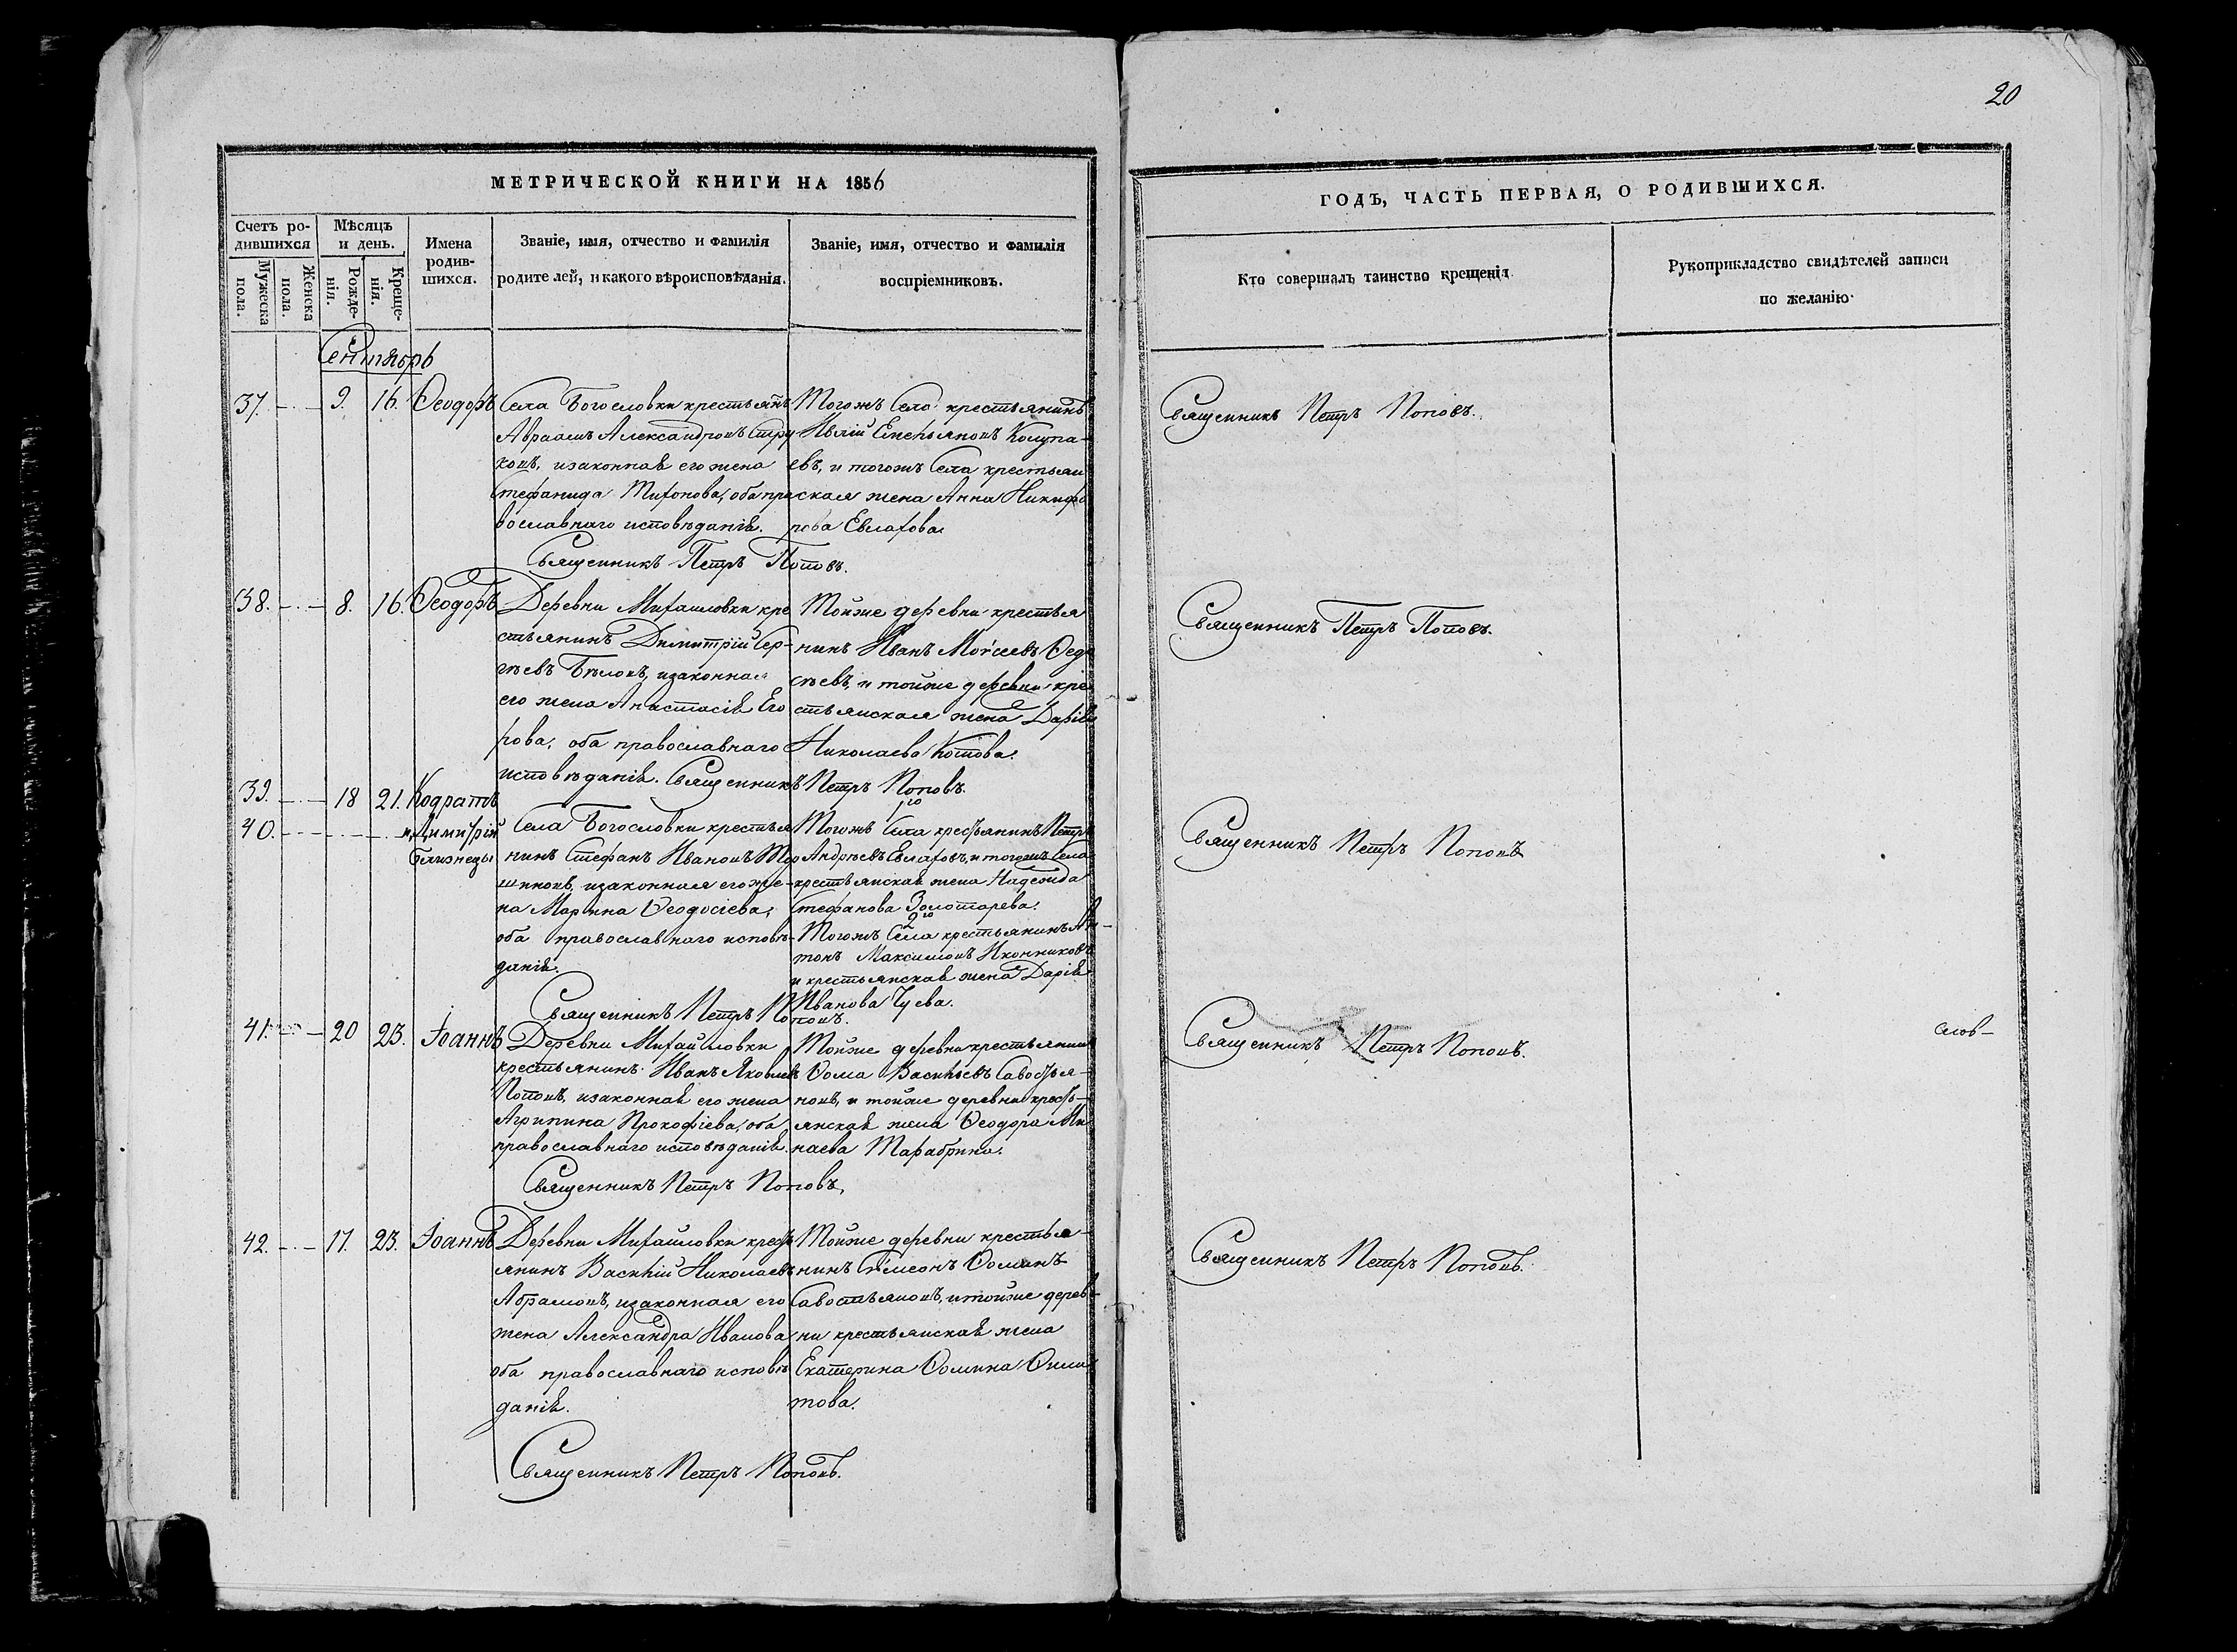 20
МЕТРИЧЕСКОЙ КНИГИ НА 1856
Счетъ ро-
дившихся
Мужеска
пола.
Женска
пола.
Мѣсяцъ
и день.
Рожде-
нія.
Креще-
нія.
Имена
родив-
шихся.
Званіе, имя, отчество и фамилія
родителей, и какого вѣроисповѣданія.
Званіе, имя, отчество и фамилія
воспріемниковъ.
ГОДЪ, ЧАСТЬ ПЕРВАЯ, О РОДИВШИХСЯ.
Кто совершалъ таинство крещенія
Рукоприкладство свидѣтелей записи
по желанію.
Сентябрь
37. 9. 16. Ѳеодоръ
Села Богословки крестьянъ
Авраамъ Александровъ Стру
ковъ, изаконная его жена
Стефанида Тихонова, оба пра
вославнаго исповѣданія.
Тогожъ Села крестьянинъ
Емельяновъ
евъ, и тогожъ Села крестьян
ская жена Анна Никифо
рова Евлахова
Священникъ Петръ Поповъ.
Священникъ Петръ Поповъ.
38. 8. 16. Ѳеодоръ
Деревни Михайловки кре
стьянинъ Димитрій Сер-
гѣевъ Бѣловъ, изаконная
его жена Анастасія Его
рова, оба православнаго
исповѣданія.
Тойже деревни крестья
нинъ Иванъ Моѵсеевъ Ѳедо
сѣевъ, и тойже деревни кре
стьянская жена Дарія
Николаева Котова.
Священникъ Петръ Поповъ.
Священникъ Петръ Поповъ.
39. 18 21. Кодратъ
40. и Димитрій
близнецы
Села Богословки крестья
нинъ Стефанъ Ивановъ
шиновъ, изаконная его же-
на Марина Ѳеодосіева,
оба православнаго исповѣ-
данія.
1го
Тогожъ Села крестьянинъ Петръ
Андреевъ Евлаховъ, и тогожъ Села
крестьянская жена Надежда
Стефанова Золотарева.
2го
Тогожъ Села крестьянинъ Ан-
тонъ Максимовъ Иконниковъ
и крестьянская жена Дарія
Иванова Чуева.
Священникъ Петръ Поповъ.
Священникъ Петръ Поповъ
41. 20 23. Іоаннъ
Деревни Михайловки
крестьянинъ Иванъ Яковлевъ
Поповъ, изаконная его жена
Агрипина Прокофіева, оба
православнаго исповѣданія.
Тойже деревни крестьянинъ
Ѳома Васильевъ Савостья-
новъ, и тойже деревни кресть-
янская жена Ѳеодора Ми
наева Тарабрина.
Священникъ Петръ Поповъ,
Священникъ Петръ Поповъ.
слов-
42. 17. 23. Іоаннъ
Деревни Михайловки кресть
янинъ Василій Николаевъ
Абрамовъ, изаконная его
жена Александра Иванова
оба православнаго исповѣ
данія.
Тойже деревни крестья-
нинъ Сѵмеонъ Ѳоминъ
Савостьяновъ, и тойже дерев-
ни крестьянская жена
Екатерина Ѳомина
това.
Священникъ Петръ Поповъ.
Священникъ Петръ Поповъ.